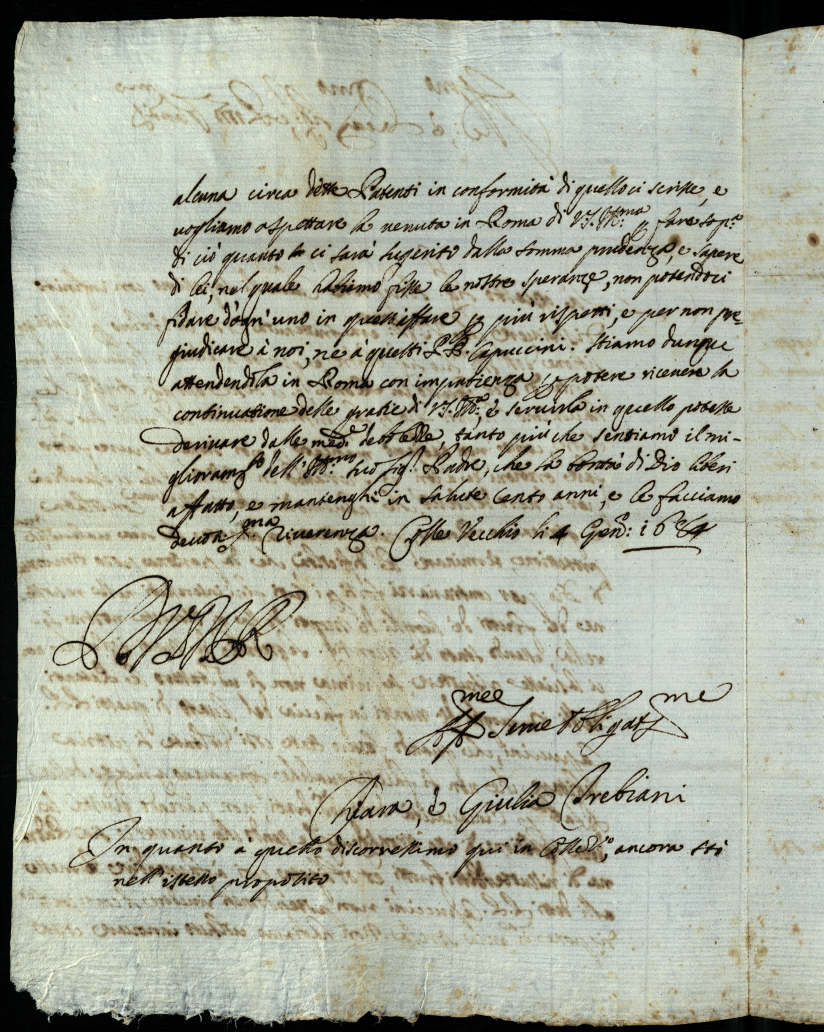 alcuna circa dette Patenti in conformità di quello ci scrisse, e
vogliamo aspettare la venuta in Roma di V.S. Ill.ma p fare sop.a
di ciò quanto ci sarà sugerito dalla somma prudenza, e sapere
di lei, nel quale habbimo fisse le nostre speranze, non potendoci
fidare d'ogn'uno in quest'affare p più rispetti, e per non pre-
giudicare à noi, ne à questi PP. Capuccini. Stiamo dunque
attendendola in Roma con impatienza p potere ricevere la
continuatione delle gratie di V.S. Ill.ma, è servirla in quello potesse
derivare dalle med.e debolezze, tanto più che sentiamo il mi-
glioram.to dell'Ill.mo suo Sig.r Padre, che la bontà di Dio liberi
affatto, e mantenghi in salute cento anni, e le facciamo
devotis.ma riverenza. Colle Vecchio li 4 Gen.o: 1684
D V.S. Ill.ma
Aff.mee Serve Obligat.me
Chiara, è Giulia Trebiani
In quanto à quello discorressimo qui in Colle V.o, ancora sto
nell'istesso proposito